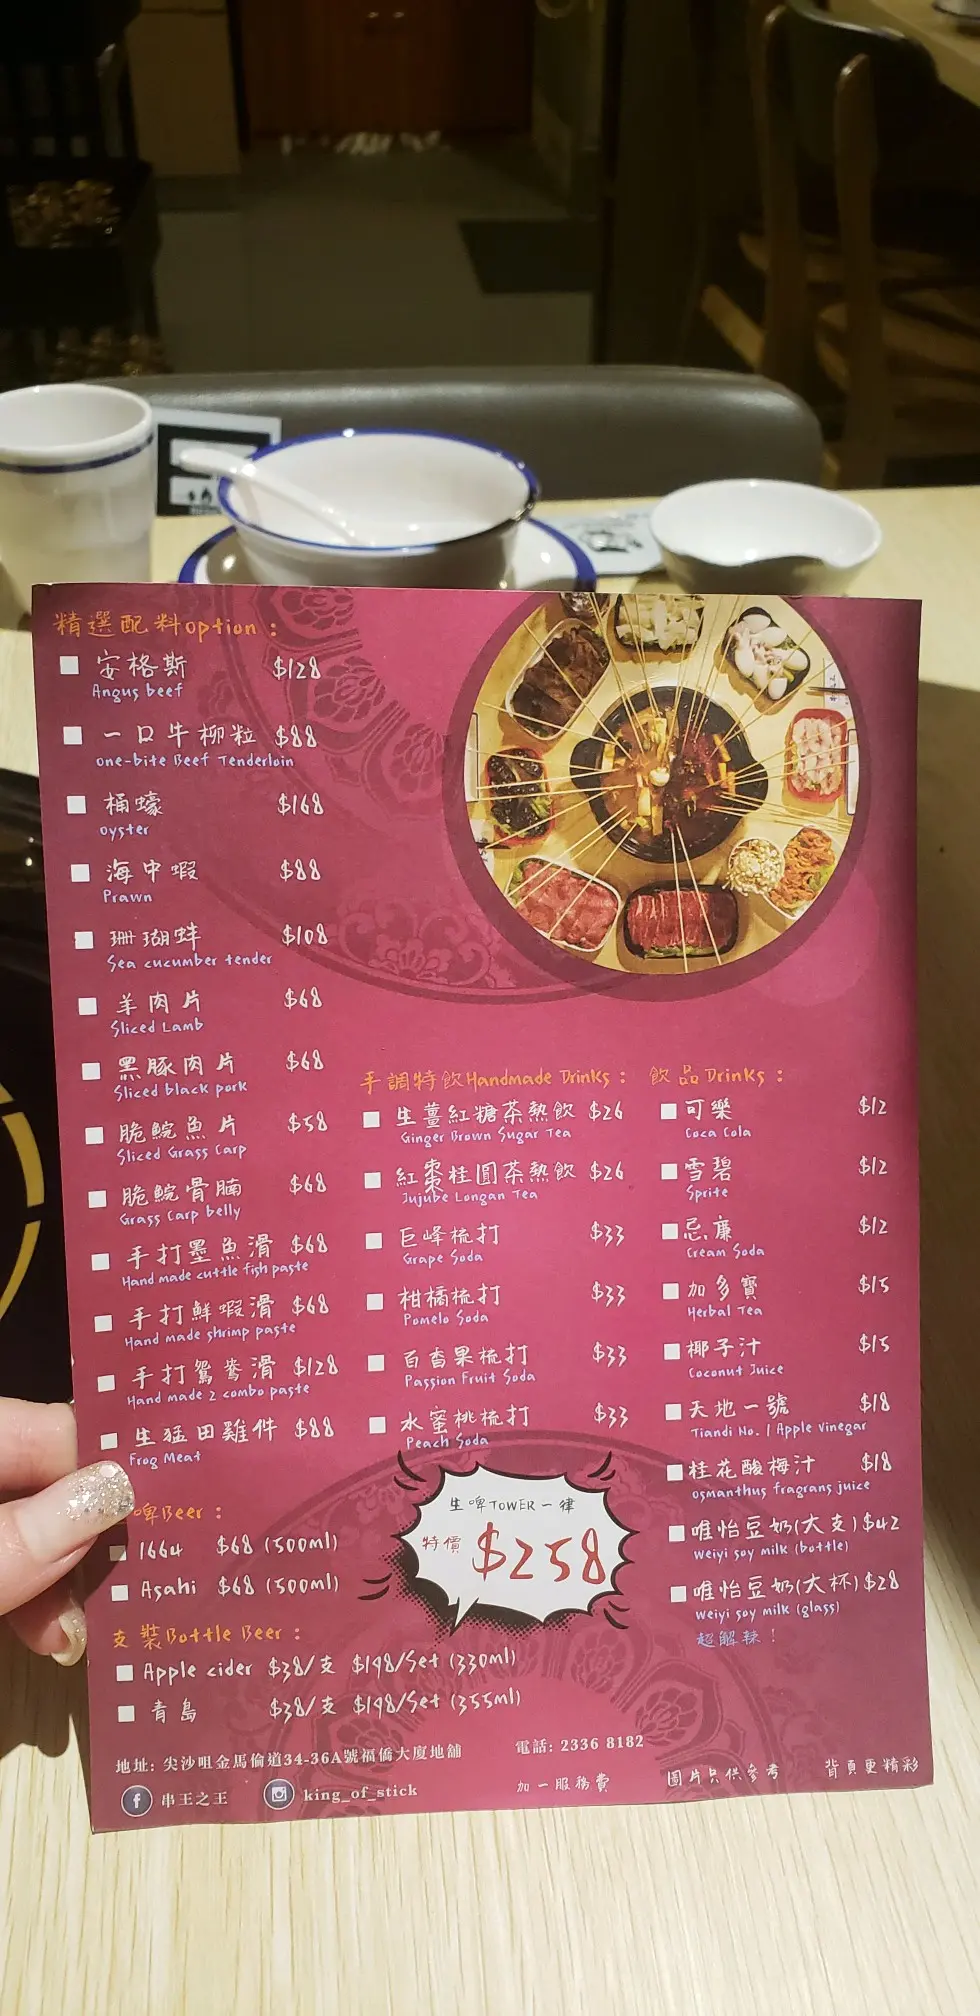 精選配料option：
安格斯 $128
Angus beef
一口牛柳粒 $88
one-bite Beef Tenderloin
桶蠔 $168
oyster
海中蝦 $88
Prawn
珊瑚蚌 $108
Sea cucumber tender
羊肉片 $68
Sliced Lamb
黑豚肉片 $68
Sliced black pork
脆鯇魚片 $58
Sliced Grass Carp
脆鯇骨腩 $68
Grass Carp belly
手打墨魚滑 $68
Hand made cuttle fish paste
手打鮮蝦滑 $68
Hand made shrimp paste
手打鴛鴦滑 $128
Hand made 2 combo paste
生猛田雞件 $88
Frog Meat
啤Beer：
1664 $68 (500ml)
Asahi $68 (500ml)
支裝Bottle Beer：
Apple cider $38/支 $198/Set (330ml)
青島 $38/支 $198/Set (355ml)
手調特飲Handmade Drinks：
生薑紅糖茶熱飲 $26
Ginger Brown Sugar Tea
紅棗桂圓茶熱飲 $26
Jujube Longan Tea
巨峰梳打 $33
Grape Soda
柑橘梳打 $33
Pomelo Soda
百香果梳打 $33
Passion Fruit Soda
水蜜桃梳打 $33
Peach Soda
生啤TOWER一律
特價 $258
飲品Drinks：
可樂 $12
Coca Cola
雪碧 $12
Sprite
忌廉 $12
Cream Soda
加多寶 $15
Herbal Tea
椰子汁 $15
Coconut Juice
天地一號 $18
Tiandi No. 1 Apple Vinegar
桂花酸梅汁 $18
osmanthus fragrans juice
唯怡豆奶(大支) $42
Weiyi soy milk (bottle)
唯怡豆奶(大杯) $28
Weiyi soy milk (glass)
超解辣！
地址: 尖沙咀金馬倫道34-36A號福僑大廈地舖
電話: 2336 8182
串王之王
king_of_stick
加一服務費
圖片只供參考
背頁更精彩